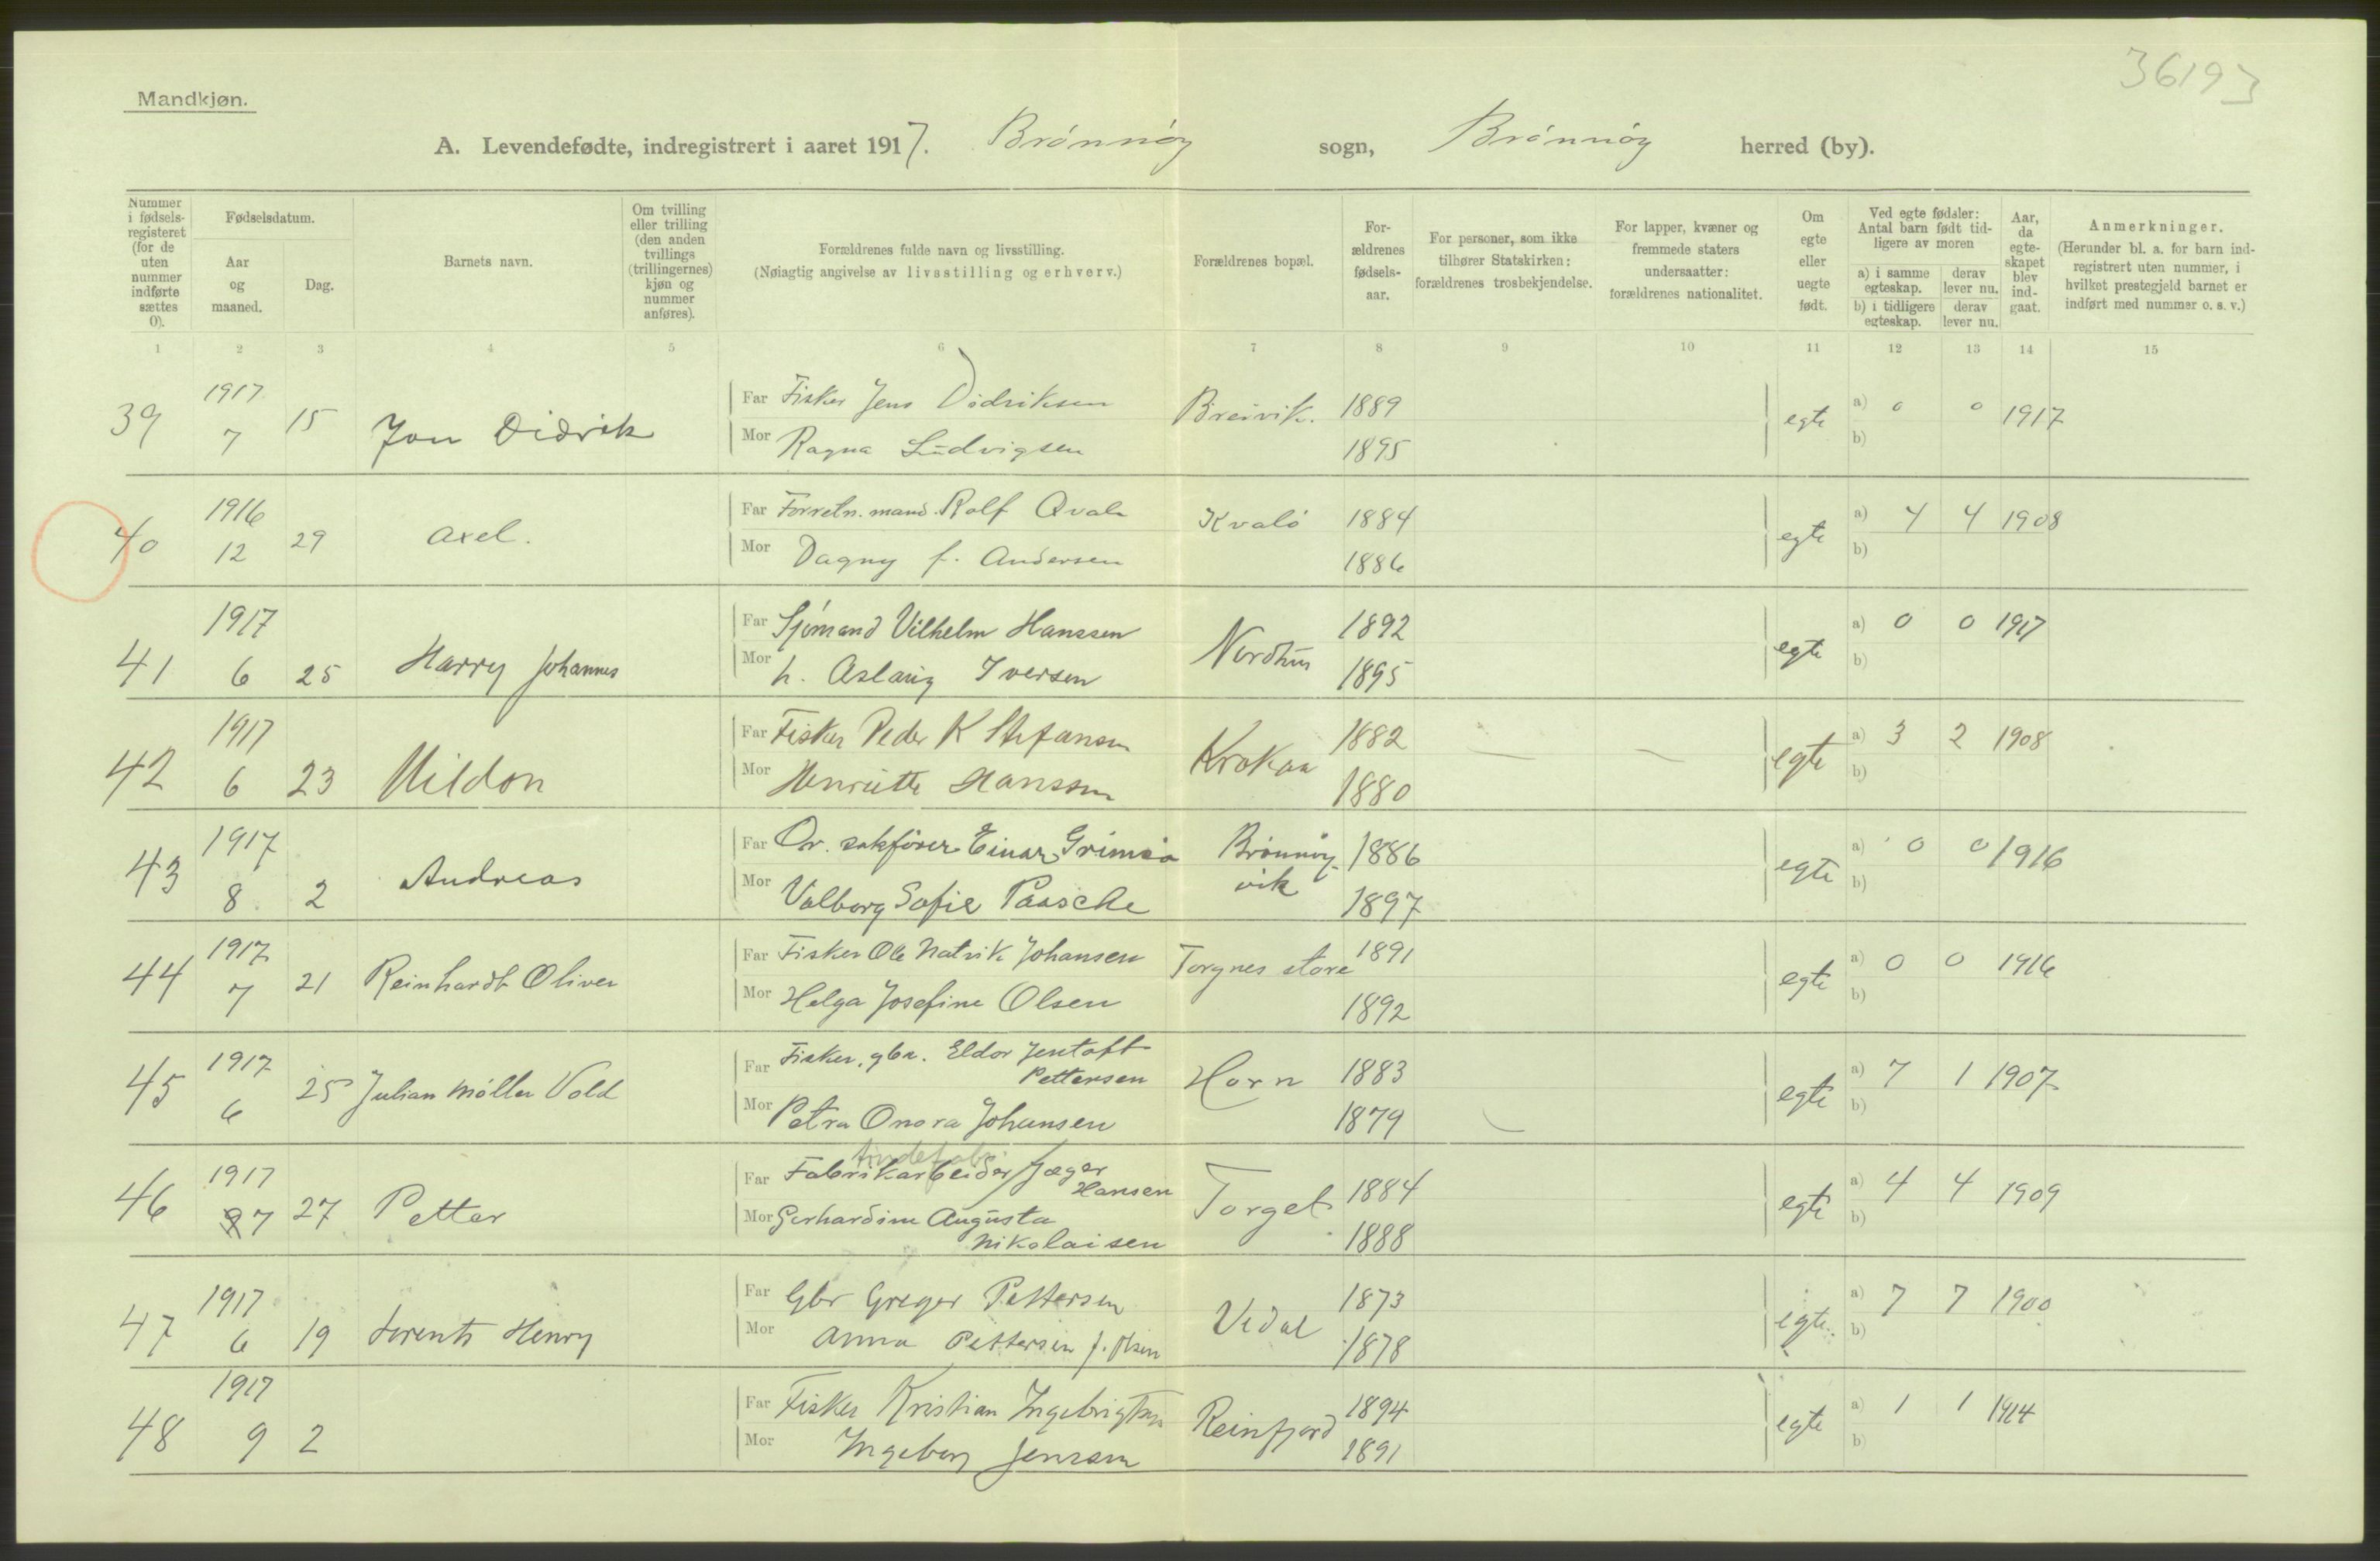 36193
Mandkjøn.
A. Levendefødte, indregistrert i aaret 1917. Brønnøy sogn, Brønnøy herred (by).
Nummer i fødsels-registeret (for de uten nummer indførte sættes 0).
Fødselsdatum.
Aar og maaned.
Dag.
Barnets navn.
Om tvilling eller trilling (den anden tvillings (trillingernes) kjøn og nummer anføres).
Forældrenes fulde navn og livsstilling.
(Nøiagtig angivelse av livsstilling og erhverv.)
Forældrenes bopæl.
For-ældrenes fødsels-aar.
For personer, som ikke tilhører Statskirken: forældrenes trosbekjendelse.
For lapper, kvæner og fremmede staters undersaatter: forældrenes nationalitet.
Om egte eller uegte født.
Ved egte fødsler: Antal barn født tid-ligere av moren
a) i samme egteskap.
derav lever nu.
b) i tidligere egteskap.
derav lever nu.
Aar, da egte-skapet blev ind-gaat.
Anmerkninger.
(Herunder bl. a. for barn ind-registrert uten nummer, i hvilket prestegjeld barnet er indført med nummer o. s. v.)
1 2 3 4 5 6 7 8 9 10 11 12 13 14 15
39 1917 7 15 Jon Didrik
Far Fisker Jens Didriksen Breivik. 1889 egte a) 0 0 1917
Mor Ragna Ludvigsen 1895 b)
40 1916 12 29 Axel.
Far Forretn.mand Rolf Qvale Kvalö 1884 egte a) 4 4 1908
Mor Dagny f. Andersen 1886 b)
41 1917 6 25 Harry Johannes
Far Sjömand Vilhelm Hanssen Nordhus 1892 egte a) 0 0 1917
Mor h. Aslaug Iversen 1895 b)
42 1917 6 23 Hildon
Far Fisker Peder K Stefansen Krokaa 1882 egte a) 3 2 1908
Mor Henriette Hanssen 1880 b)
43 1917 8 2 Andreas
Far Or. sakfører Einar Grimsø Brønnøy-vik 1886 egte a) 0 0 1916
Mor Valborg Sofie Paasche 1897 b)
44 1917 7 21 Reinhardt Oliver
Far Fisker Ole Natvik Johansen Torgnes store 1891 egte a) 0 0 1916
Mor Helga Josefine Olsen 1892 b)
45 1917 6 25 Julian Møller Vold
Far Fisker, gbr. Eldor Jentoft Pettersen Horn 1883 egte a) 7 1 1907
Mor Petra Onora Johansen 1879 b)
46 1917 7 27 Petter
Far Fabrikarbeider Jæger Hansen Torget 1884 egte a) 4 4 1909
Mor Gerhardine Augusta Nikolaisen 1888 b)
47 1917 6 19 Lorents Henry
Far Gbr Greger Pettersen Vedal 1873 egte. a) 7 7 1900
Mor Anna Pettersen f. Olsen 1878 b)
48 1917 9 2
Far Fisker Kristian Ingebrigtsen Reinfjord 1894 egte a) 1 1 1914
Mor Ingeborg Jenssen 1891 b)